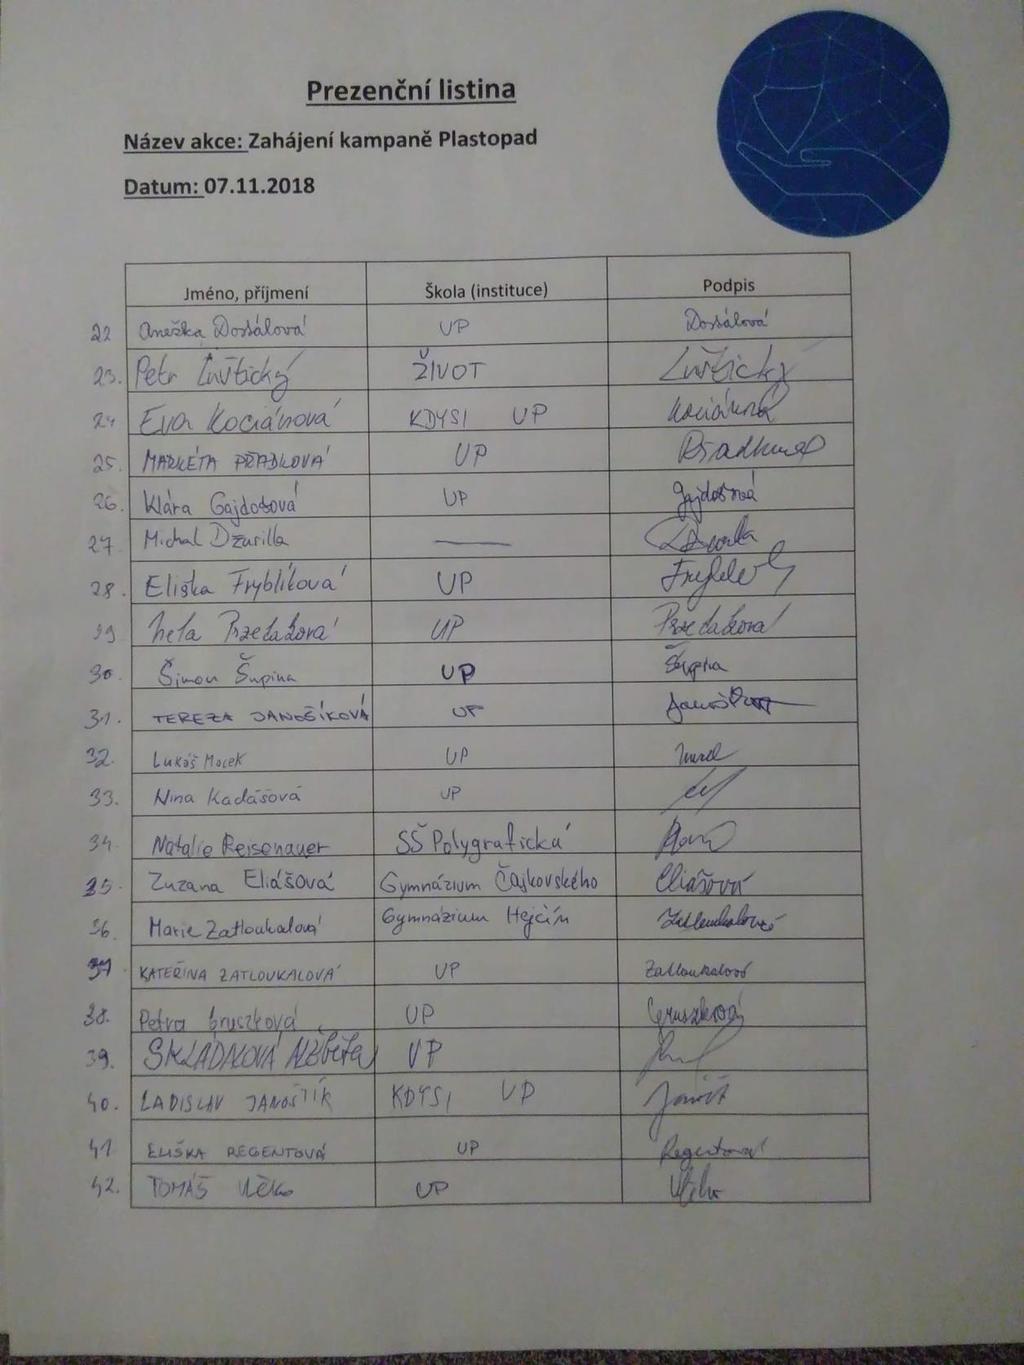 Prezenční listina
Název akce: Zahájení kampaně Plastopad
Datum: 07.11.2018
Jméno, příjmení Škola (instituce) Podpis
22 Anežka Dostálová UP Dostálová
23. Petr ŽIVOT
24 Eva Kociánová KDYSI UP Kociánová
25. MARKÉTA PŘADKOVÁ UP
26. Klára Gajdošová UP Gajdošová
27 Michal Džurilla —
28. Eliška Fryblíková UP
29 UP
30. Šimon Šupina UP Šupina
31. TEREZA JANOŠÍKOVÁ UP
32. Lukáš Mocek UP
33. Nina Kadášová UP
34. Natalie Reisenauer SŠ Polygrafická
35. Zuzana Eliášová Gymnázium Čajkovského Eliášová
36. Marie Zatloukalová Gymnázium Hejčín Zatloukalová
37 KATEŘINA ZATLOUKALOVÁ UP Zatloukalová
38. Petra Gruszková UP Gruszková
39. SKLÁDALOVÁ Alžběta UP
40. LADISLAV KDYSI UP
41 ELIŠKA REGENTOVÁ UP Regentová
42. TOMÁŠ UP